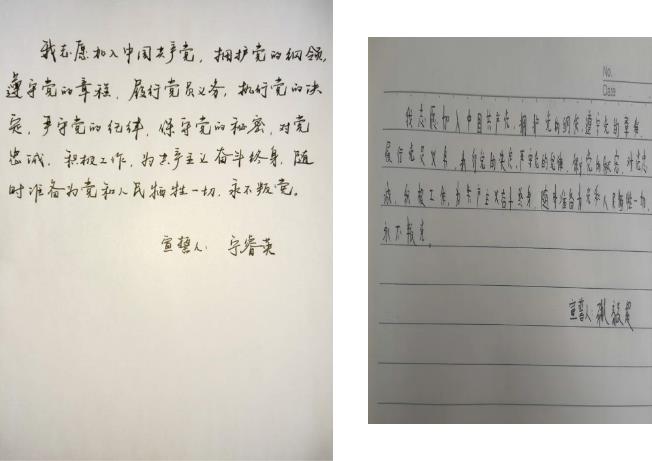 我志愿加入中国共产党，拥护党的纲领，
遵守党的章程，履行党员义务，执行党的决
定，严守党的纪律，保守党的秘密，对党
忠诚，积极工作，为共产主义奋斗终身，随
时准备为党和人民牺牲一切，永不叛党。
宣誓人：宁睿英
No.
Date
我志愿加入中国共产党，拥护党的纲领，遵守党的章程，
履行党员义务，执行党的决定，严守党的纪律，保守党的秘密，对党忠
诚，积极工作，为共产主义奋斗终身，随时准备为党和人民牺牲一切，
永不叛党。
宣誓人：